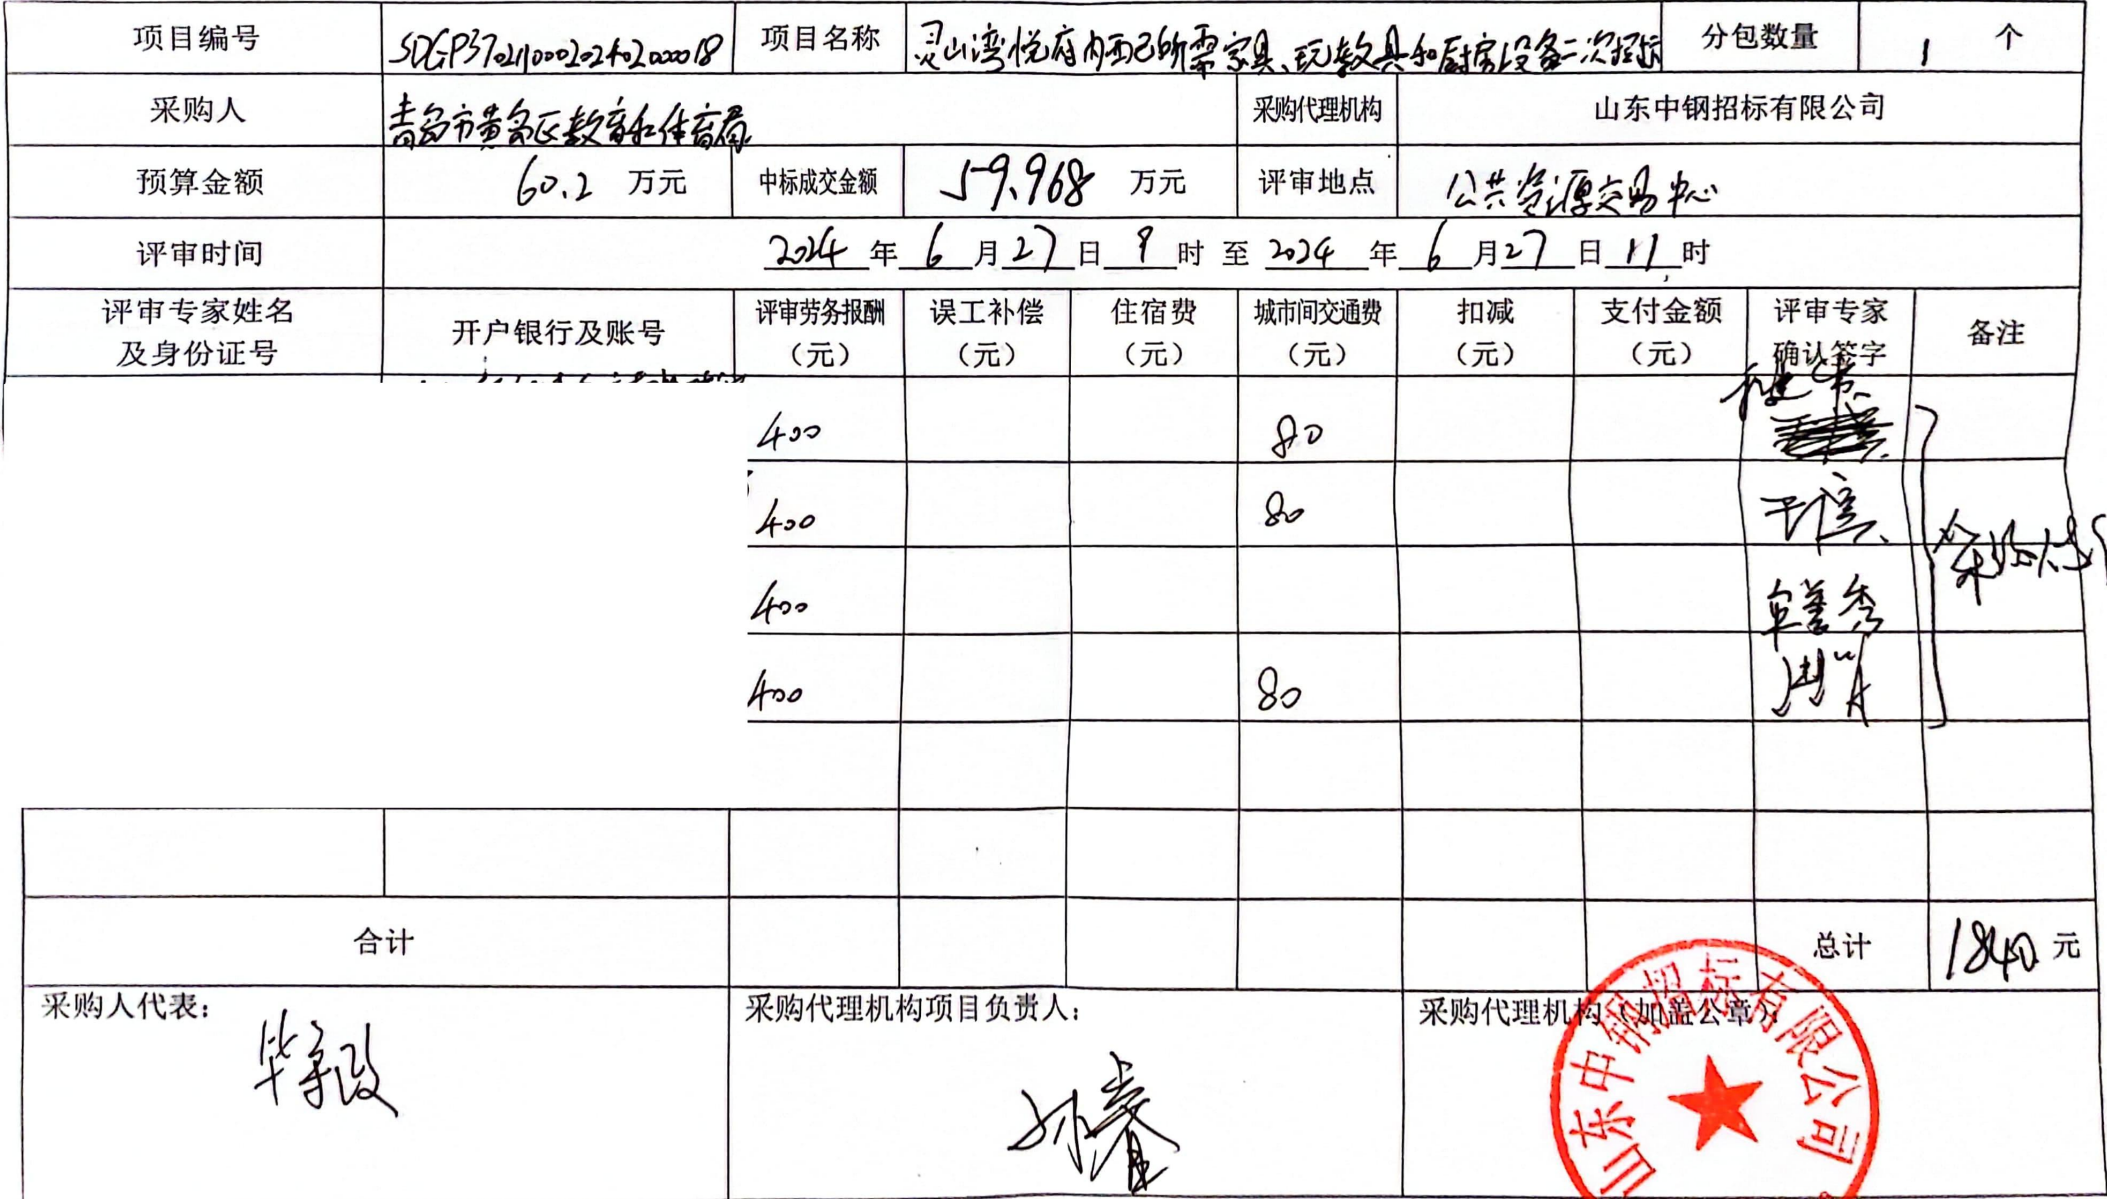 项目编号 SDGP370211000202402000018 项目名称 灵山湾悦府内配所需家具、玩教具和厨房设备二次招标 分包数量 1 个
采购人 青岛市黄岛区教育和体育局 采购代理机构 山东中钢招标有限公司
预算金额 60.2 万元 中标成交金额 59.968 万元 评审地点 公共资源交易中心
评审时间 2024 年 6 月 27 日 9 时 至 2024 年 6 月 27 日 11 时
评审专家姓名及身份证号 开户银行及账号 评审劳务报酬（元） 误工补偿（元） 住宿费（元） 城市间交通费（元） 扣减（元） 支付金额（元） 评审专家确认签字 备注
400 80
400 80
400
400 80
合计 总计 1840 元
采购人代表： 采购代理机构项目负责人： 采购代理机构（加盖公章）：
山东中钢招标有限公司